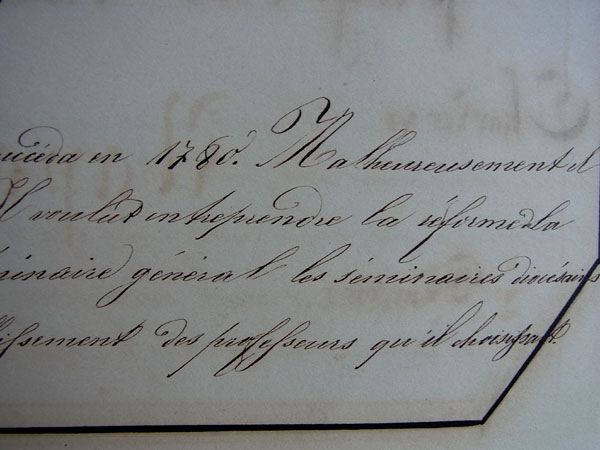 succéda en 1780. Malheureusement il
Il voulût entreprendre la réforme de la
séminaire général les séminaires diocésains
lissement des professeurs qu'il choisissait.